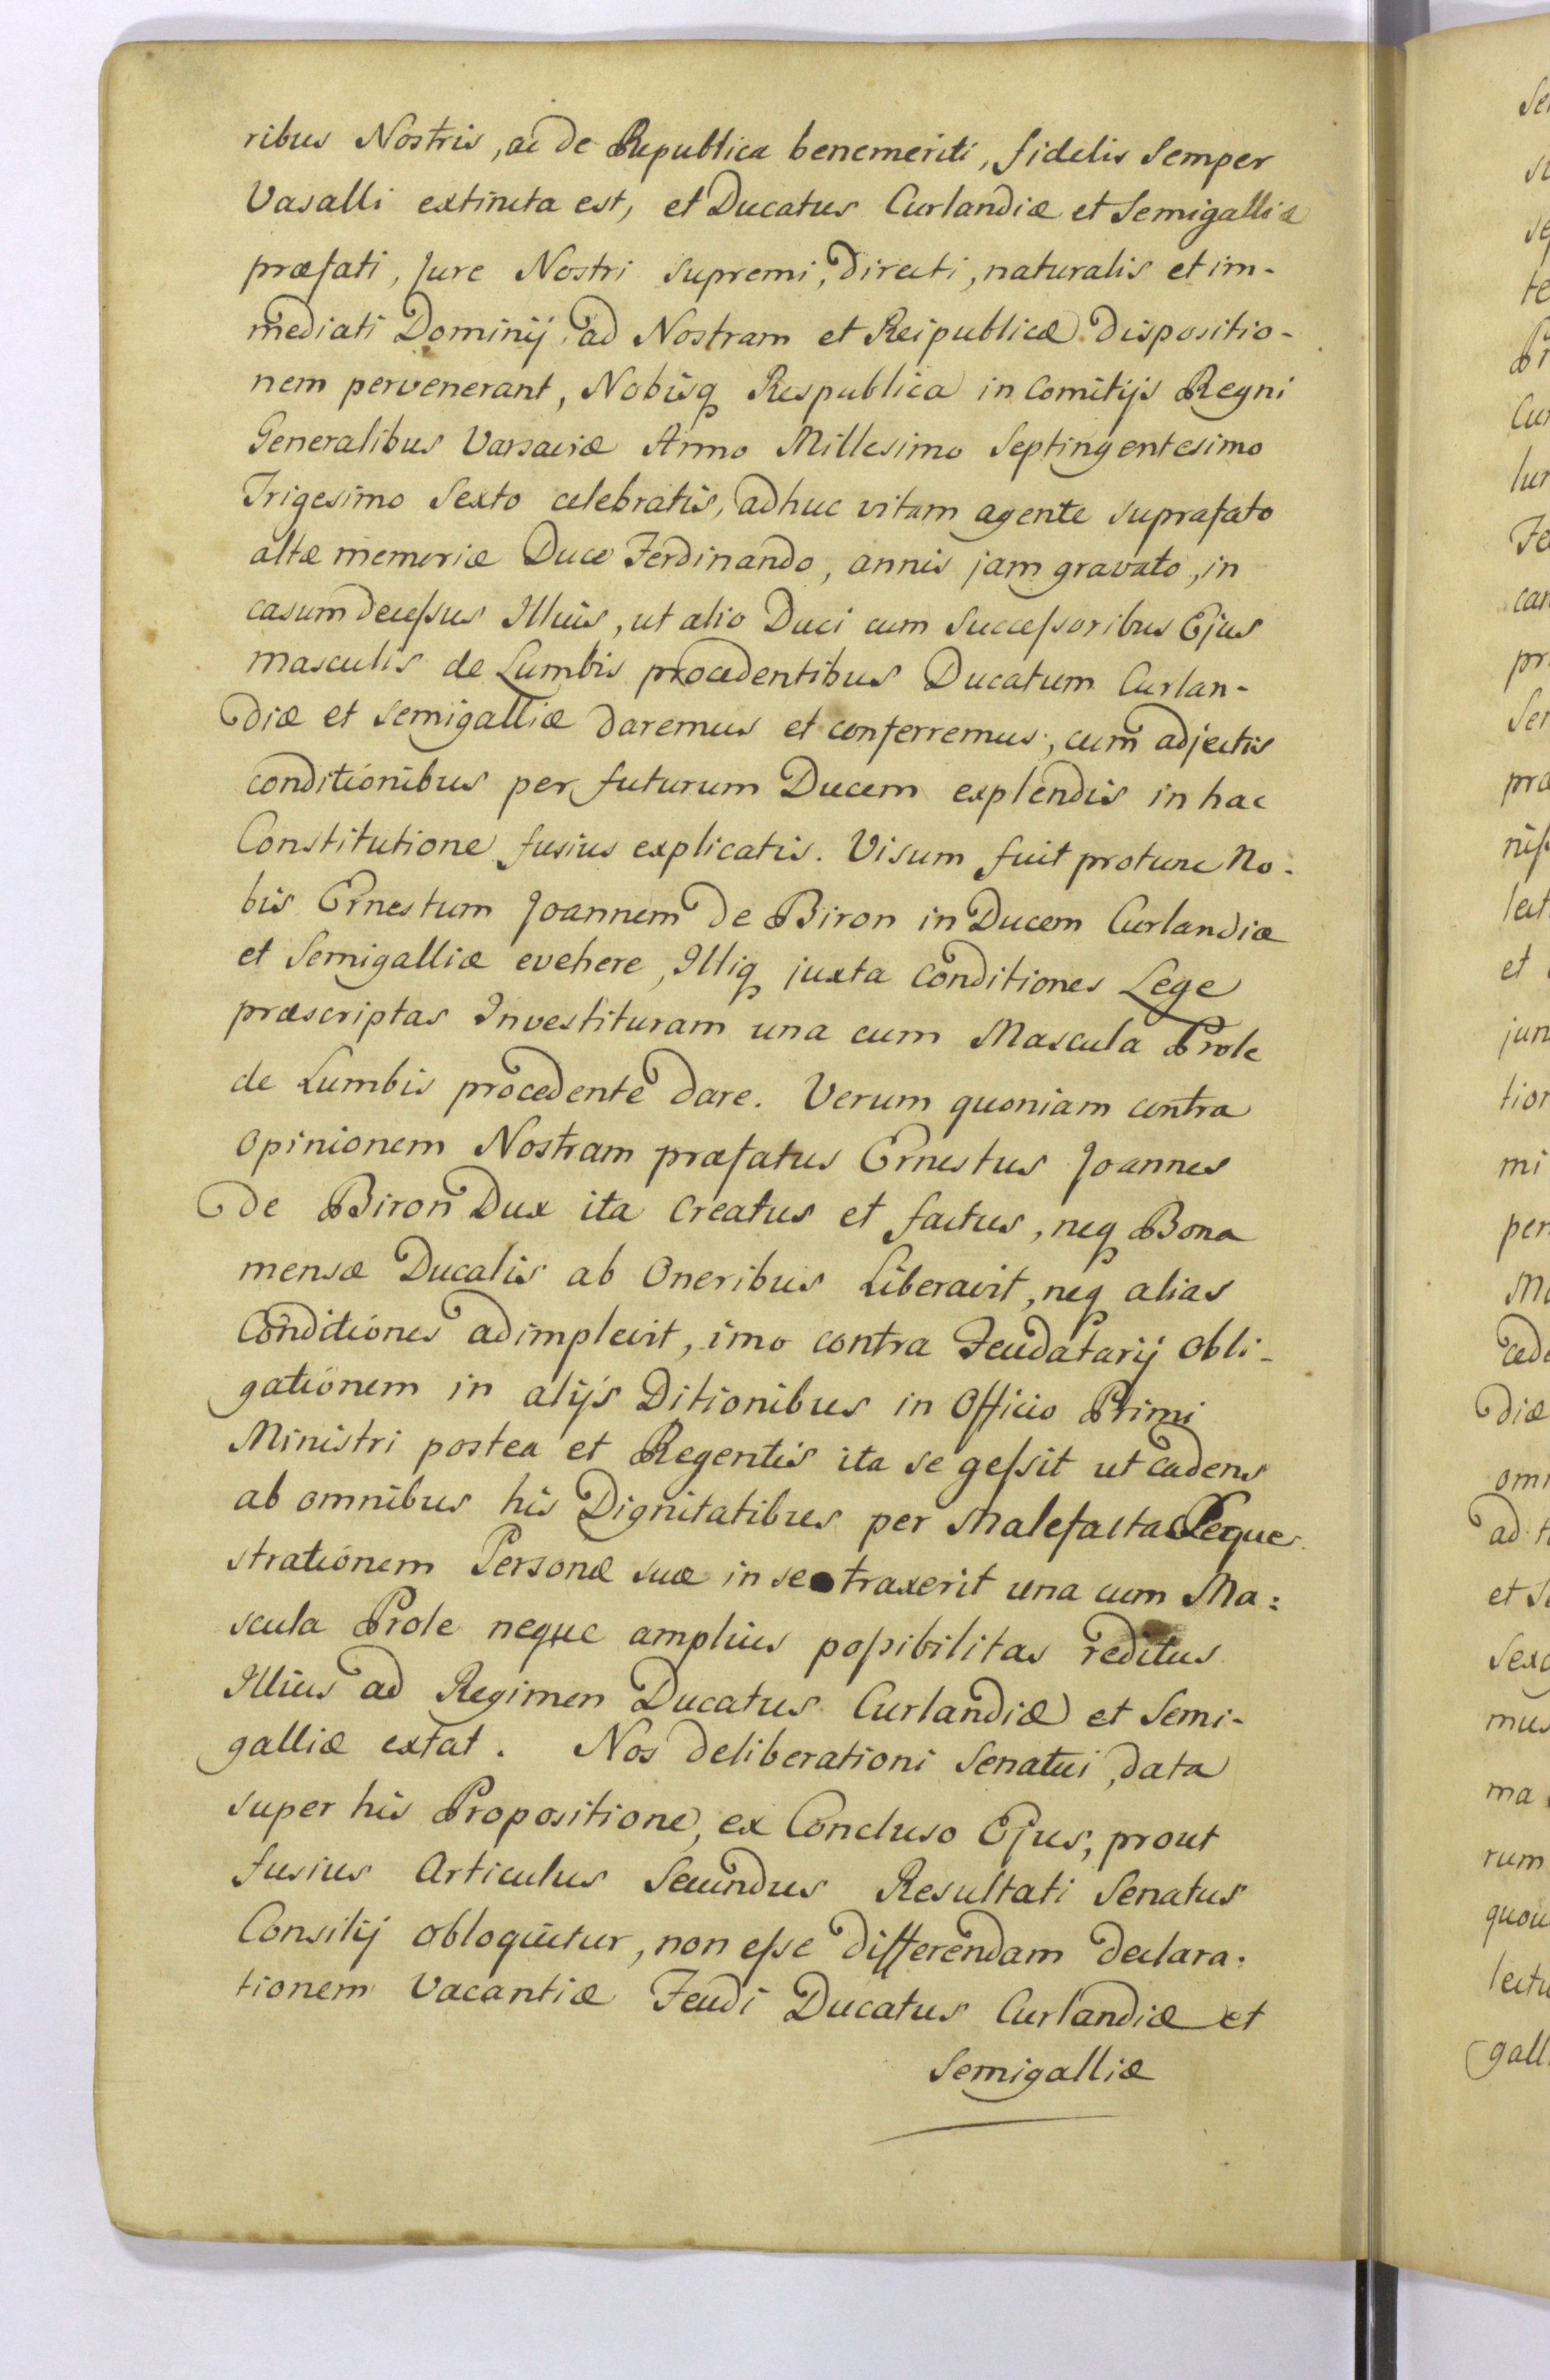 ribus Nostris, ac de Republica benemeriti, fidelis semper
Vasalli extincta est, et Ducatus Curlandiæ et Semigalliæ
præfati, Jure Nostri supremi, directi, naturalis et im-
mediati Dominij, ad Nostram et Reipublicæ dispositio-
nem pervenerant, Nobisq Respublica in Comitijs Regni
Generalibus Varsaviæ Anno Millesimo Septingentesimo
Trigesimo Sexto celebratis, adhuc vitam agente suprafato
altæ memoriæ Duce Ferdinando, annis jam gravato, in
casum decessus Illius, ut alio Duci cum Successoribus Ejus
masculis de Lumbis procedentibus Ducatum Curlan-
diæ et Semigalliæ daremus et conferremus, cum adjectis
conditionibus per futurum Ducem explendis in hac
Constitutione fusius explicatis. Visum fuit protunc No-
bis Ernestum Joannem de Biron in Ducem Curlandiæ
et Semigalliæ evehere, Illiq juxta Conditiones Lege
præscriptas Investituram una cum Mascula Prole
de Lumbis procedente dare. Verum quoniam contra
opinionem Nostram præfatus Ernestus Joannes
de Biron Dux ita creatus et factus, neq Bona
mensæ Ducalis ab Oneribus Liberavit, neq alias
Conditiones adimplevit, imo contra Feudatarij obli-
gationem in alijs Ditionibus in Officio Primi
Ministri postea et Regentis ita se gessit ut cadens
ab omnibus his Dignitatibus per Malefacta Seque-
strationem Personæ suæ in se traxerit una cum Ma:
scula Prole neque amplius possibilitas reditus
Illius ad Regimen Ducatus Curlandiæ et Semi-
galliæ extat. Nos deliberationi Senatui data
super his Propositione, ex Concluso Ejus, prout
fusius Articulus Secundus Resultati Senatus
Consilij obloquitur, non esse differendam declara:
tionem Vacantiæ Feudi Ducatus Curlandiæ et
Semigalliæ